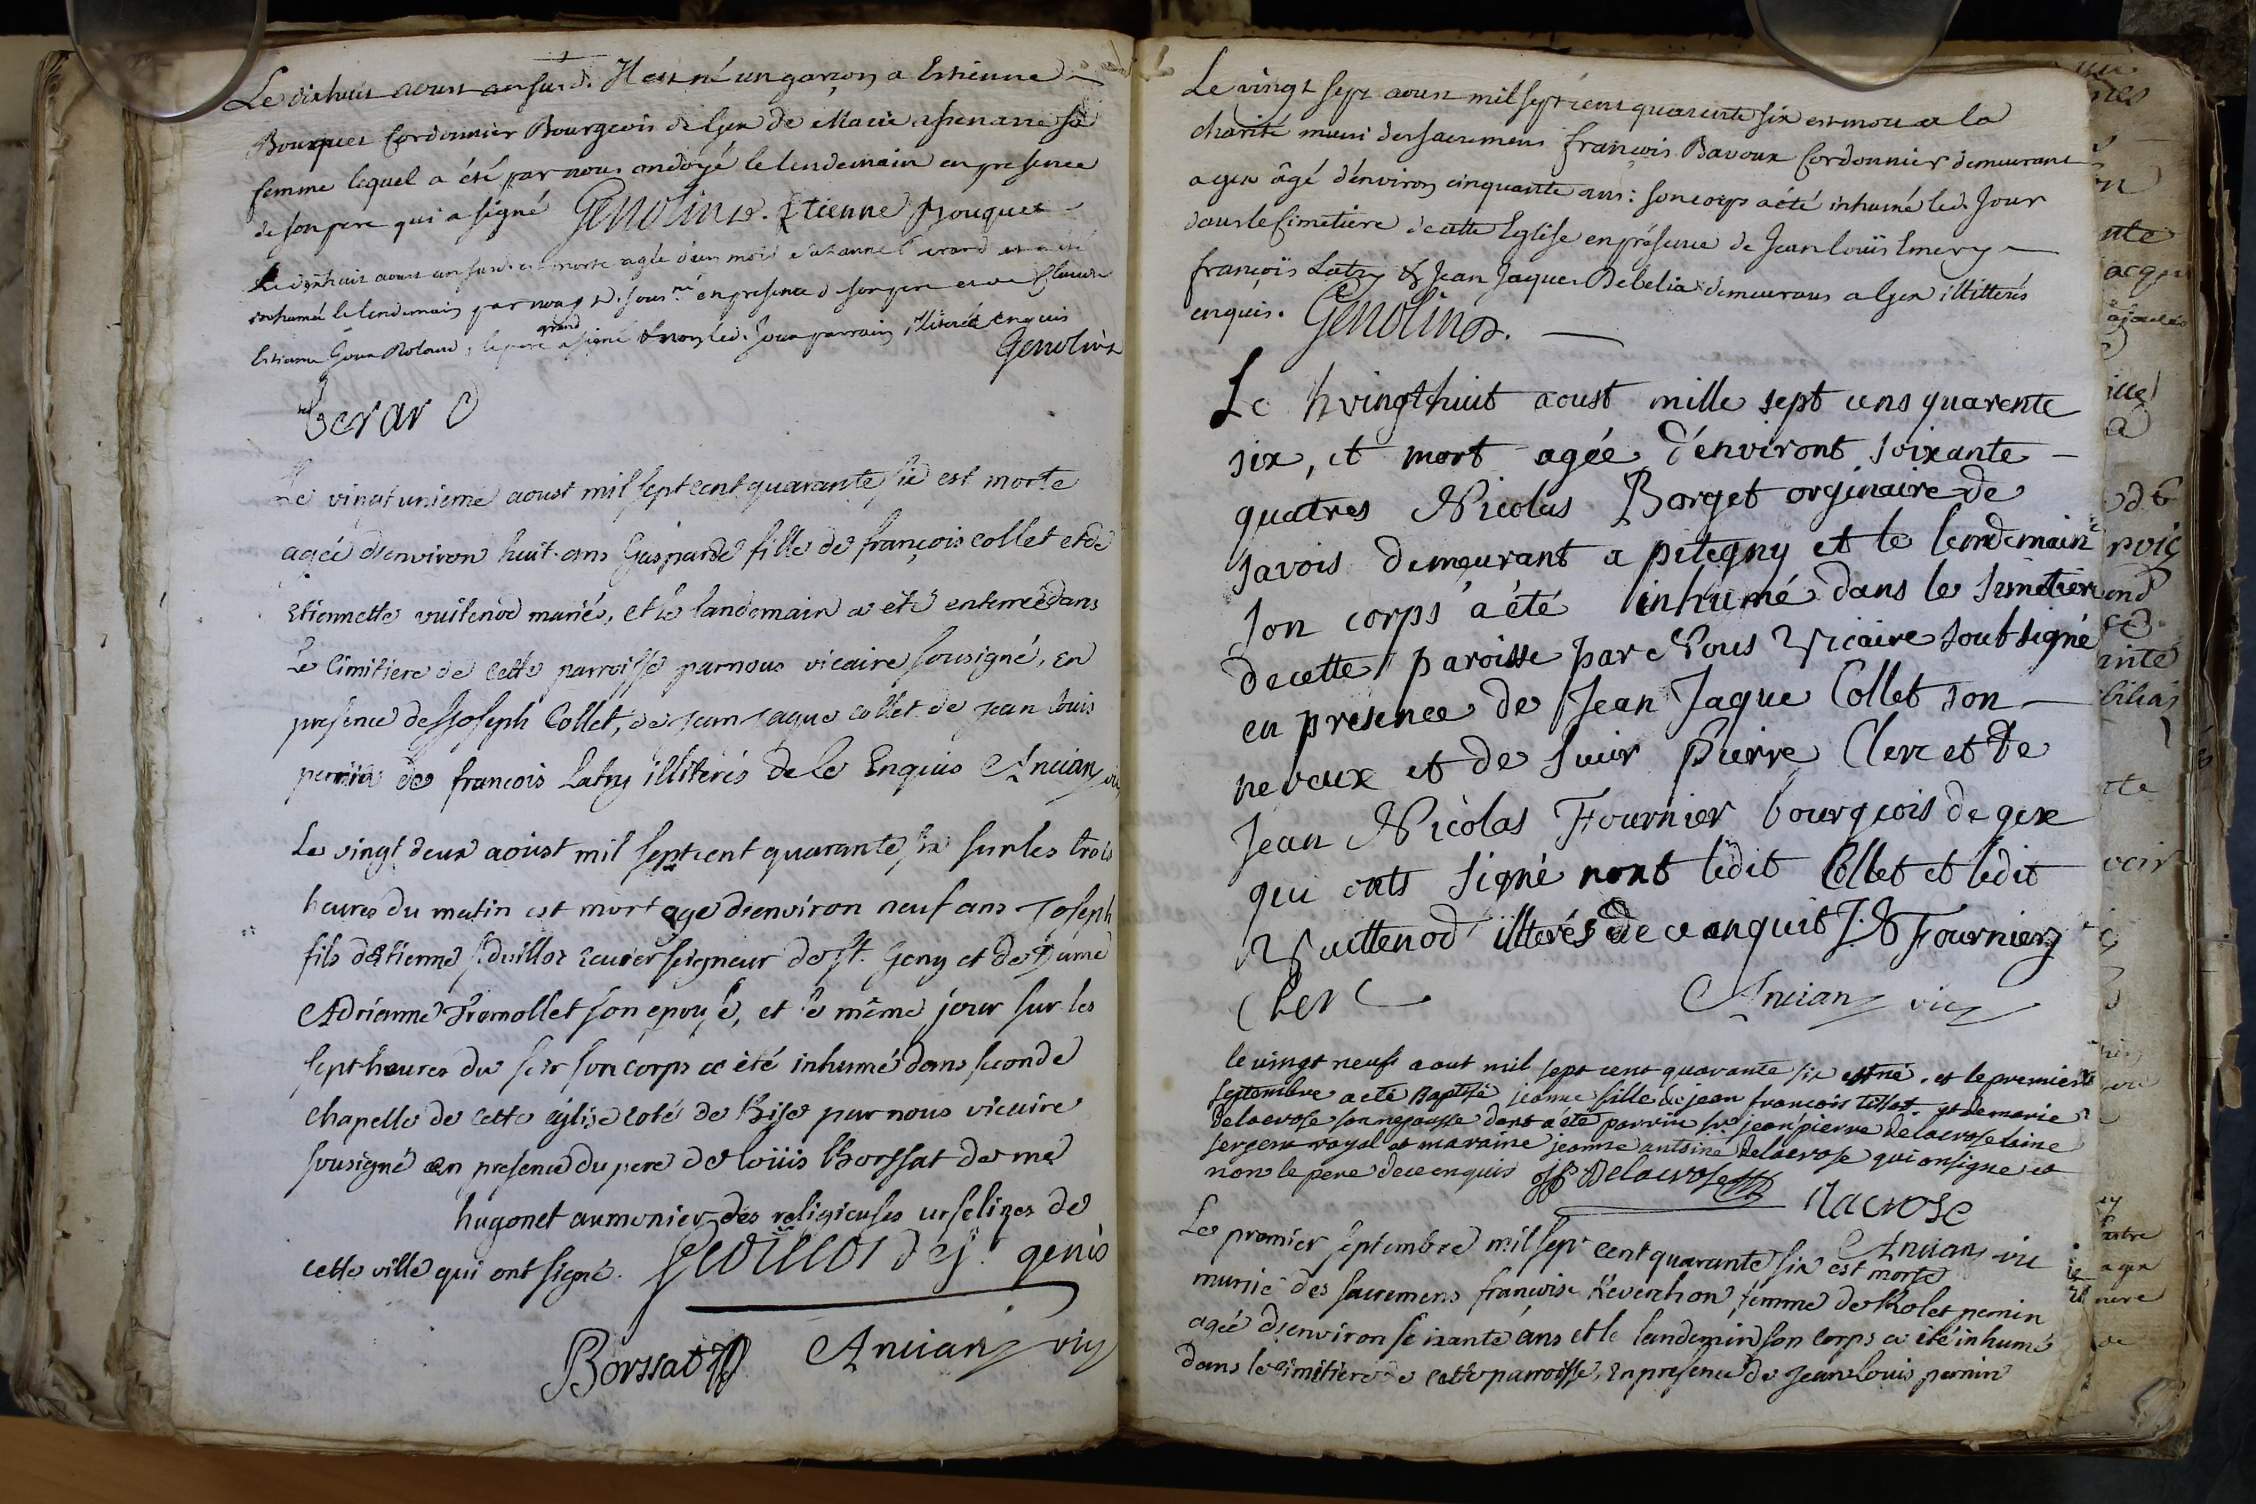 Le dixhuit aoust an susd. Il est né un garzon a Estienne
Bouquet Cordonnier Bourgeois de Gex de Marie sa
femme lequel a été par nous ondoyé le lendemain en presence
de son pere qui a signé Genolin Etienne Bouquet
Le dixhuit aoust an susd. est morte agée d'un mois Gerard et a été
inhumé le lendemain par nous en presence de son pere et de
Estienne Goux Roland, le pere grand a signé & non led. Goux parrain illiteré enquis
Genolin
Gerard
Le vingt unieme aoust mil sept cent quarante six est morte
agée d'environ huit ans Gasparde fille de françois collet et de
Etiennette vuitenod mariés, et le landemain a été enterrée dans
Le cimitiere de cette parroisse par nous vicaire sousigné, en
presence de Joseph Collet, de jean jaque collet de jean louis
pernin de francois Latry illiterés de le Enquis Ancian vic
Le vingt deux aoust mil sept cent quarante six sur les trois
heures du matin est mort age d'environ neuf ans Joseph
fils d'Etienne Ecuier seigneur de st. Geny et de Dame
Adrianne Fremollet son epouse, et le même jour sur les
sept heures du soir son corps a été inhumé dans seconde
chapelle de cette eglise coté de bise par nous vicaire
sousigné en presence du pere de loüis Borssat de me
hugonet aumonier des religieuses urselines de
cette ville qui ont signé. de st. genis
Borssat Ancian vic
Le vingt sept aoust mil sept cent quarente six est mort a la
charité muni des sacremens françois Bavoux Cordonnier demeurant
a gex âgé d'environ cinquante ans: son corps a été inhumé led. Jour
dans le Cimetiere de cette Eglise en présence de Jean loüis Emery
françois Latry & Jean Jaques Debelia demeurans a Gex illitterés
enquis. Genolin
Le vingthuit aoust mille sept cens quarente
six, et mort agée d'environt soixante
quatres Nicolas Borget orginaire de
savois demeurant a pitegny et le lendemain
son corps a été inhumé dans le simetiere
de cette paroisse par Nous Vicaire soubsigné
en presence de Jean Jaque Collet son
neveux et de suir Pierre Clerc et de
Jean Nicolas Fournier bourgeois de gex
qui onts signé nont ledit Collet et ledit
Vuittenod illterés de ce anquit J. N Fournier
Clerc Ancian vic
le vingt neuf aout mil sept cent quarante six est né. et le premier
septembre a eté Baptisé jeanne fille de jean francois tissot et de marie
delacrose son nepousse dont a été parrin sr jean pierre delacrose laine
sergent royal et maraine jeanne antoine delacrose qui on signe et
non le pere de ce enquis Delacrose
Lacrose
Ancian vic
Le premier septembre mil sept cent quarante six est morte
munie des sacremens françoise Reverchon femme de Rolet pernin
agée d'environ seixante ans et le landemin son corps a été inhumé
dans le cimitiere de cette parroisse, en presence de jean louis pernin